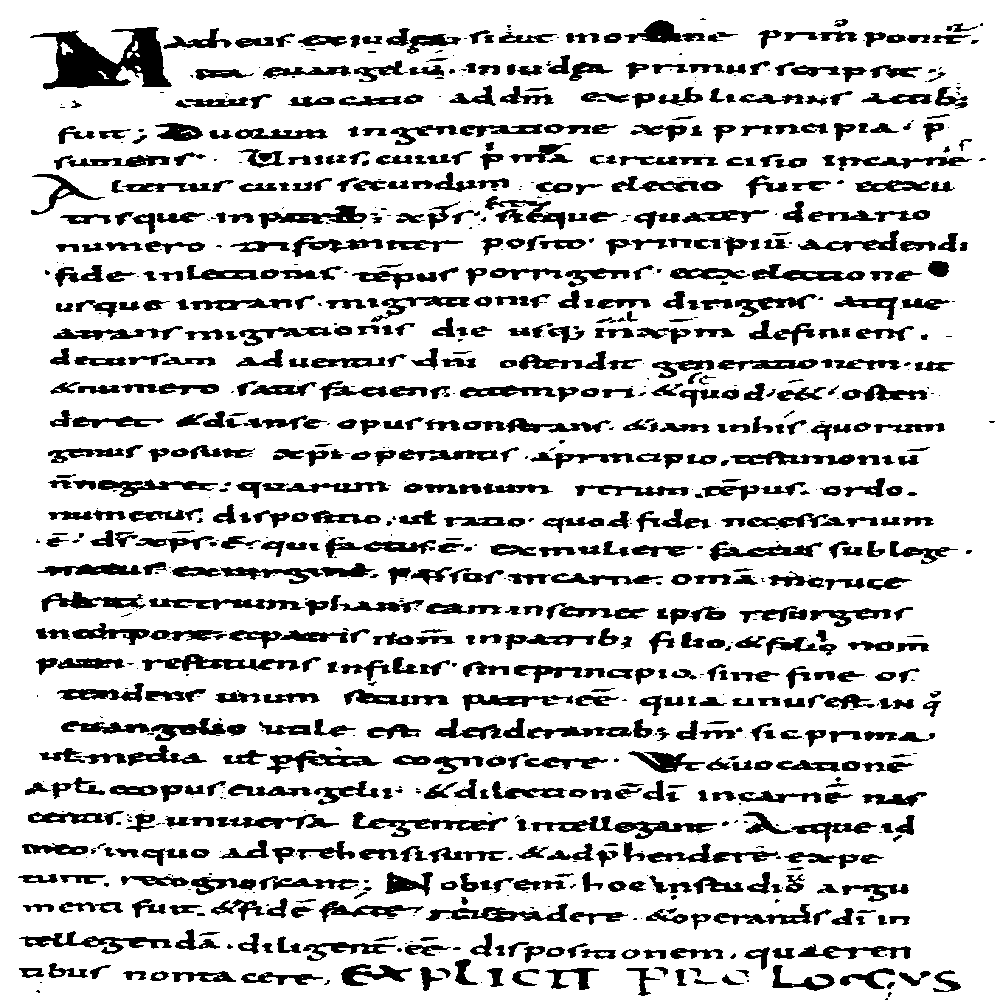 Matheus ex iudęa sicut in ordine primus ponitur.
ita euangeliū. in iudęa primus scripsit;
cuius uocatio ad dm̄ ex publicanis actib;
fuit; Duorum in generatione xp̄i principia. p̄
sumens. Unius, cuius prima circumcisio in carne.
Alterius cuius secundum cor electio fuit. et ex u
trisque in patrib; xp̄s. sicque quater denario
numero triformiter posito. principiū a credendi
fide in lectionis tēpus porrigens. et ex electione
usque in transmigrationis diem dirigens. atque
a transmigrationis die usq; in xp̄m definiens.
decursam aduentus dn̄i ostendit generationem. ut
& numero satis faciens et tempori. & quod eēt osten
deret & dī in se opus monstrans. etiam in his quorum
genus posuit xp̄i operantis a principio. testimoniū
n̄ negaret. quarum omnium rerum. tēpus. ordo.
numerus, dispositio, ul ratio. quod fidei necessarium
ē. ds̄ xp̄s. ē. qui factus. ē. ex muliere. factus sub lege.
natus ex uirgine. passus in carne. omā in cruce
fixit ut triumphans eam in semet ipso resurgens
in corpore. et patris nom̄ in patrib; filio, & filio nom̄
patri restituens in filius. sine principio. sine fine os
tendens unum secum patre eē. quia unus est. in q̊
euangelio utile est desiderantib; dm̄ sic prima
ul media ul perfecta cognoscere. Ut & uocationē
apl̄i et opus euangelii. & dilectionē dī in carnē nas
centis. p uniuersa legentes intellegant. Atque id
in eo. in quo adprehensi sunt. & adp̄hendere expe
tunt. recognoscant; Nobis enim hoc in studiō argu
menti fuit. & fidē factę rei tradere. & operantis dī in
tellegendā. diligentē. eē dispositionem, quaeren
tibus non tacere. EXPLICIT PROLOGUS